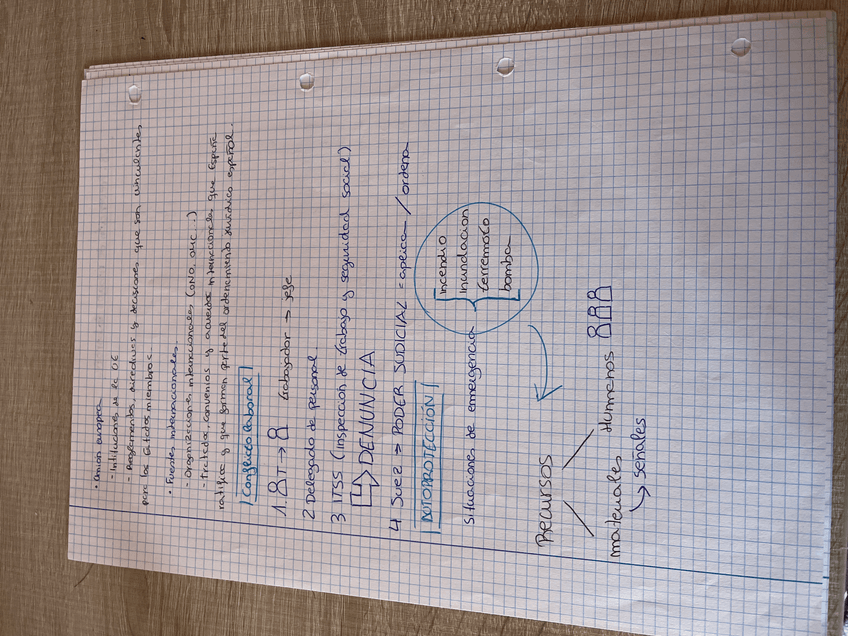 • Unión europea
- Intituciones de la UE
- Reglamentos, directivas y decisiones que son vinculantes
para los Estados miembros.
• Fuentes internacionales.
- Organizaciones internacionales (ONO, OHC..)
- tratados, convenios y acuerdos internacionales que España
ratifica y que forman parte del ordenamiento jurídico español.
Conflicto laboral
1. T → trabajador → jefe
2 Delegado de personal.
3 ITSS (inspeccion de trabajo y seguridad social)
↳ DENUNCIA
4 Juez → PODER JUDICIAL = aplican / ordena
AUTOPROTECCIÓN
Situaciones de emergencia
incendio
inundacion
terremoto
bomba
Recursos
materiales Humanos
↳ señales